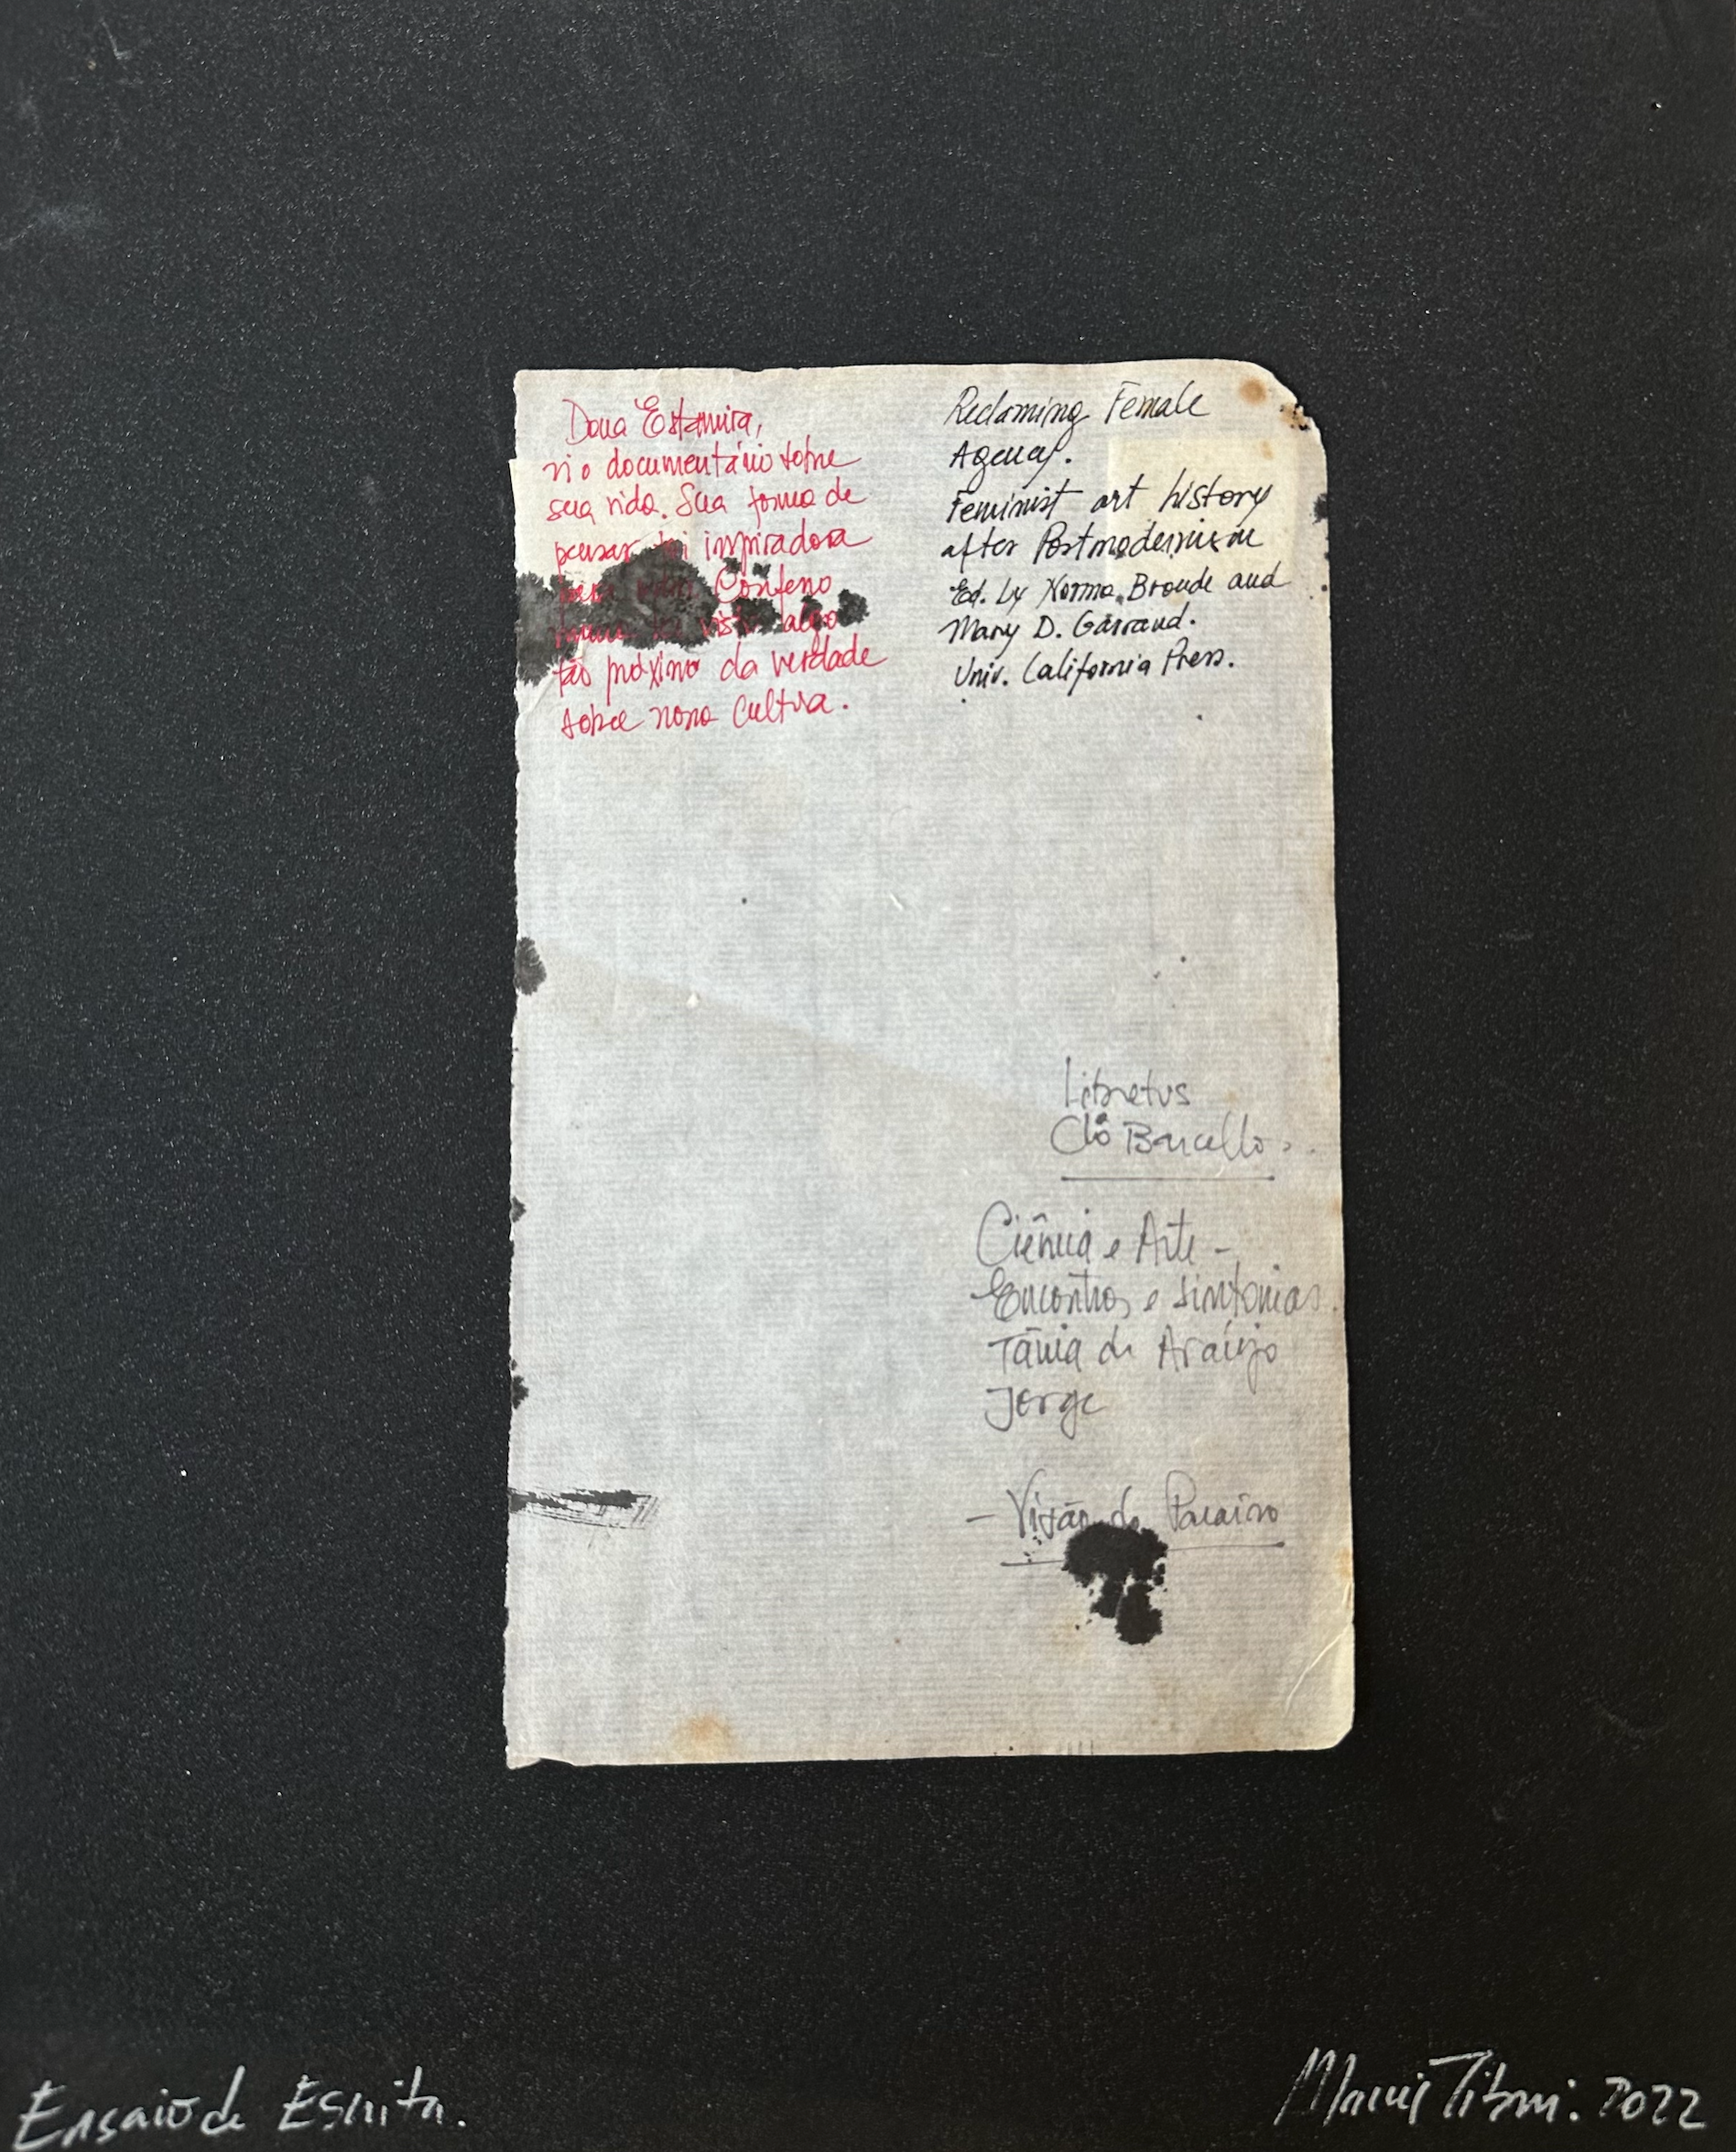 Dona Estamira,
vi o documentário sobre
sua vida. Sua forma de
pensar foi inspiradora
Confesso
visto algo
tão próximo da verdade
sobre nossa cultura.
Reclaming Female
Agency.
Feminist art history
after Postmodernism
Ed. by Norma Broude and
Mary D. Garrard.
Univ. California Press.
Libretus
Clô Barcello
Ciência e Arte -
Encontros e sintonias.
Tânia de Araújo
Jorge
- Visão do Paraíso
Ensaio de Escrita.
2022